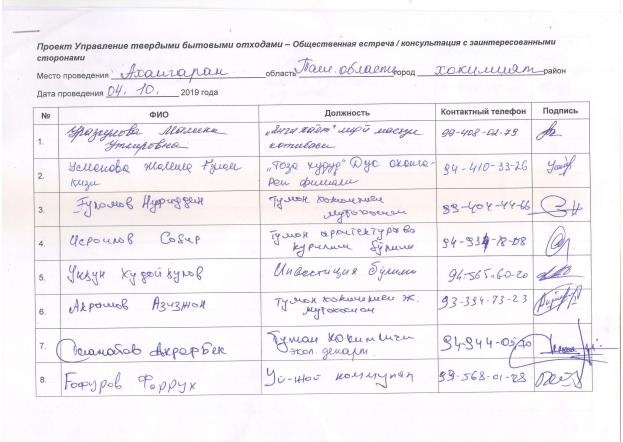 Проект Управление твердыми бытовыми отходами – Общественная встреча / консультация с заинтересованными
сторонами
Место проведения Ахангаран область Таш. область город хокимият район
Дата проведения 04. 10. 2019 года
№ ФИО Должность Контактный телефон Подпись
1. Уразкулова Малика Уткировна "Янги хаёт" МФЙ маслук котибаси 99-408-02-79
2. Усманова Жамила Гулом кизи "Тоза худуд" ДУК филиали 94-410-33-26
3. Гуломов Нуриддин Туман хокимияти мутахассис 93-404-44-66
4. Исроилов Собир Туман архитектура курилиш булими
5. Худойкулов Инвестиция булими 94-565-60-20
6. Акрамов Азизжон Туман мутахассис 93-394-73-23
7. Ахрорбек Туман хокимлиги экол. департ. 94-944-05-70
8. Гофуров Фаррух Уй-жой коммунал 99-568-01-28